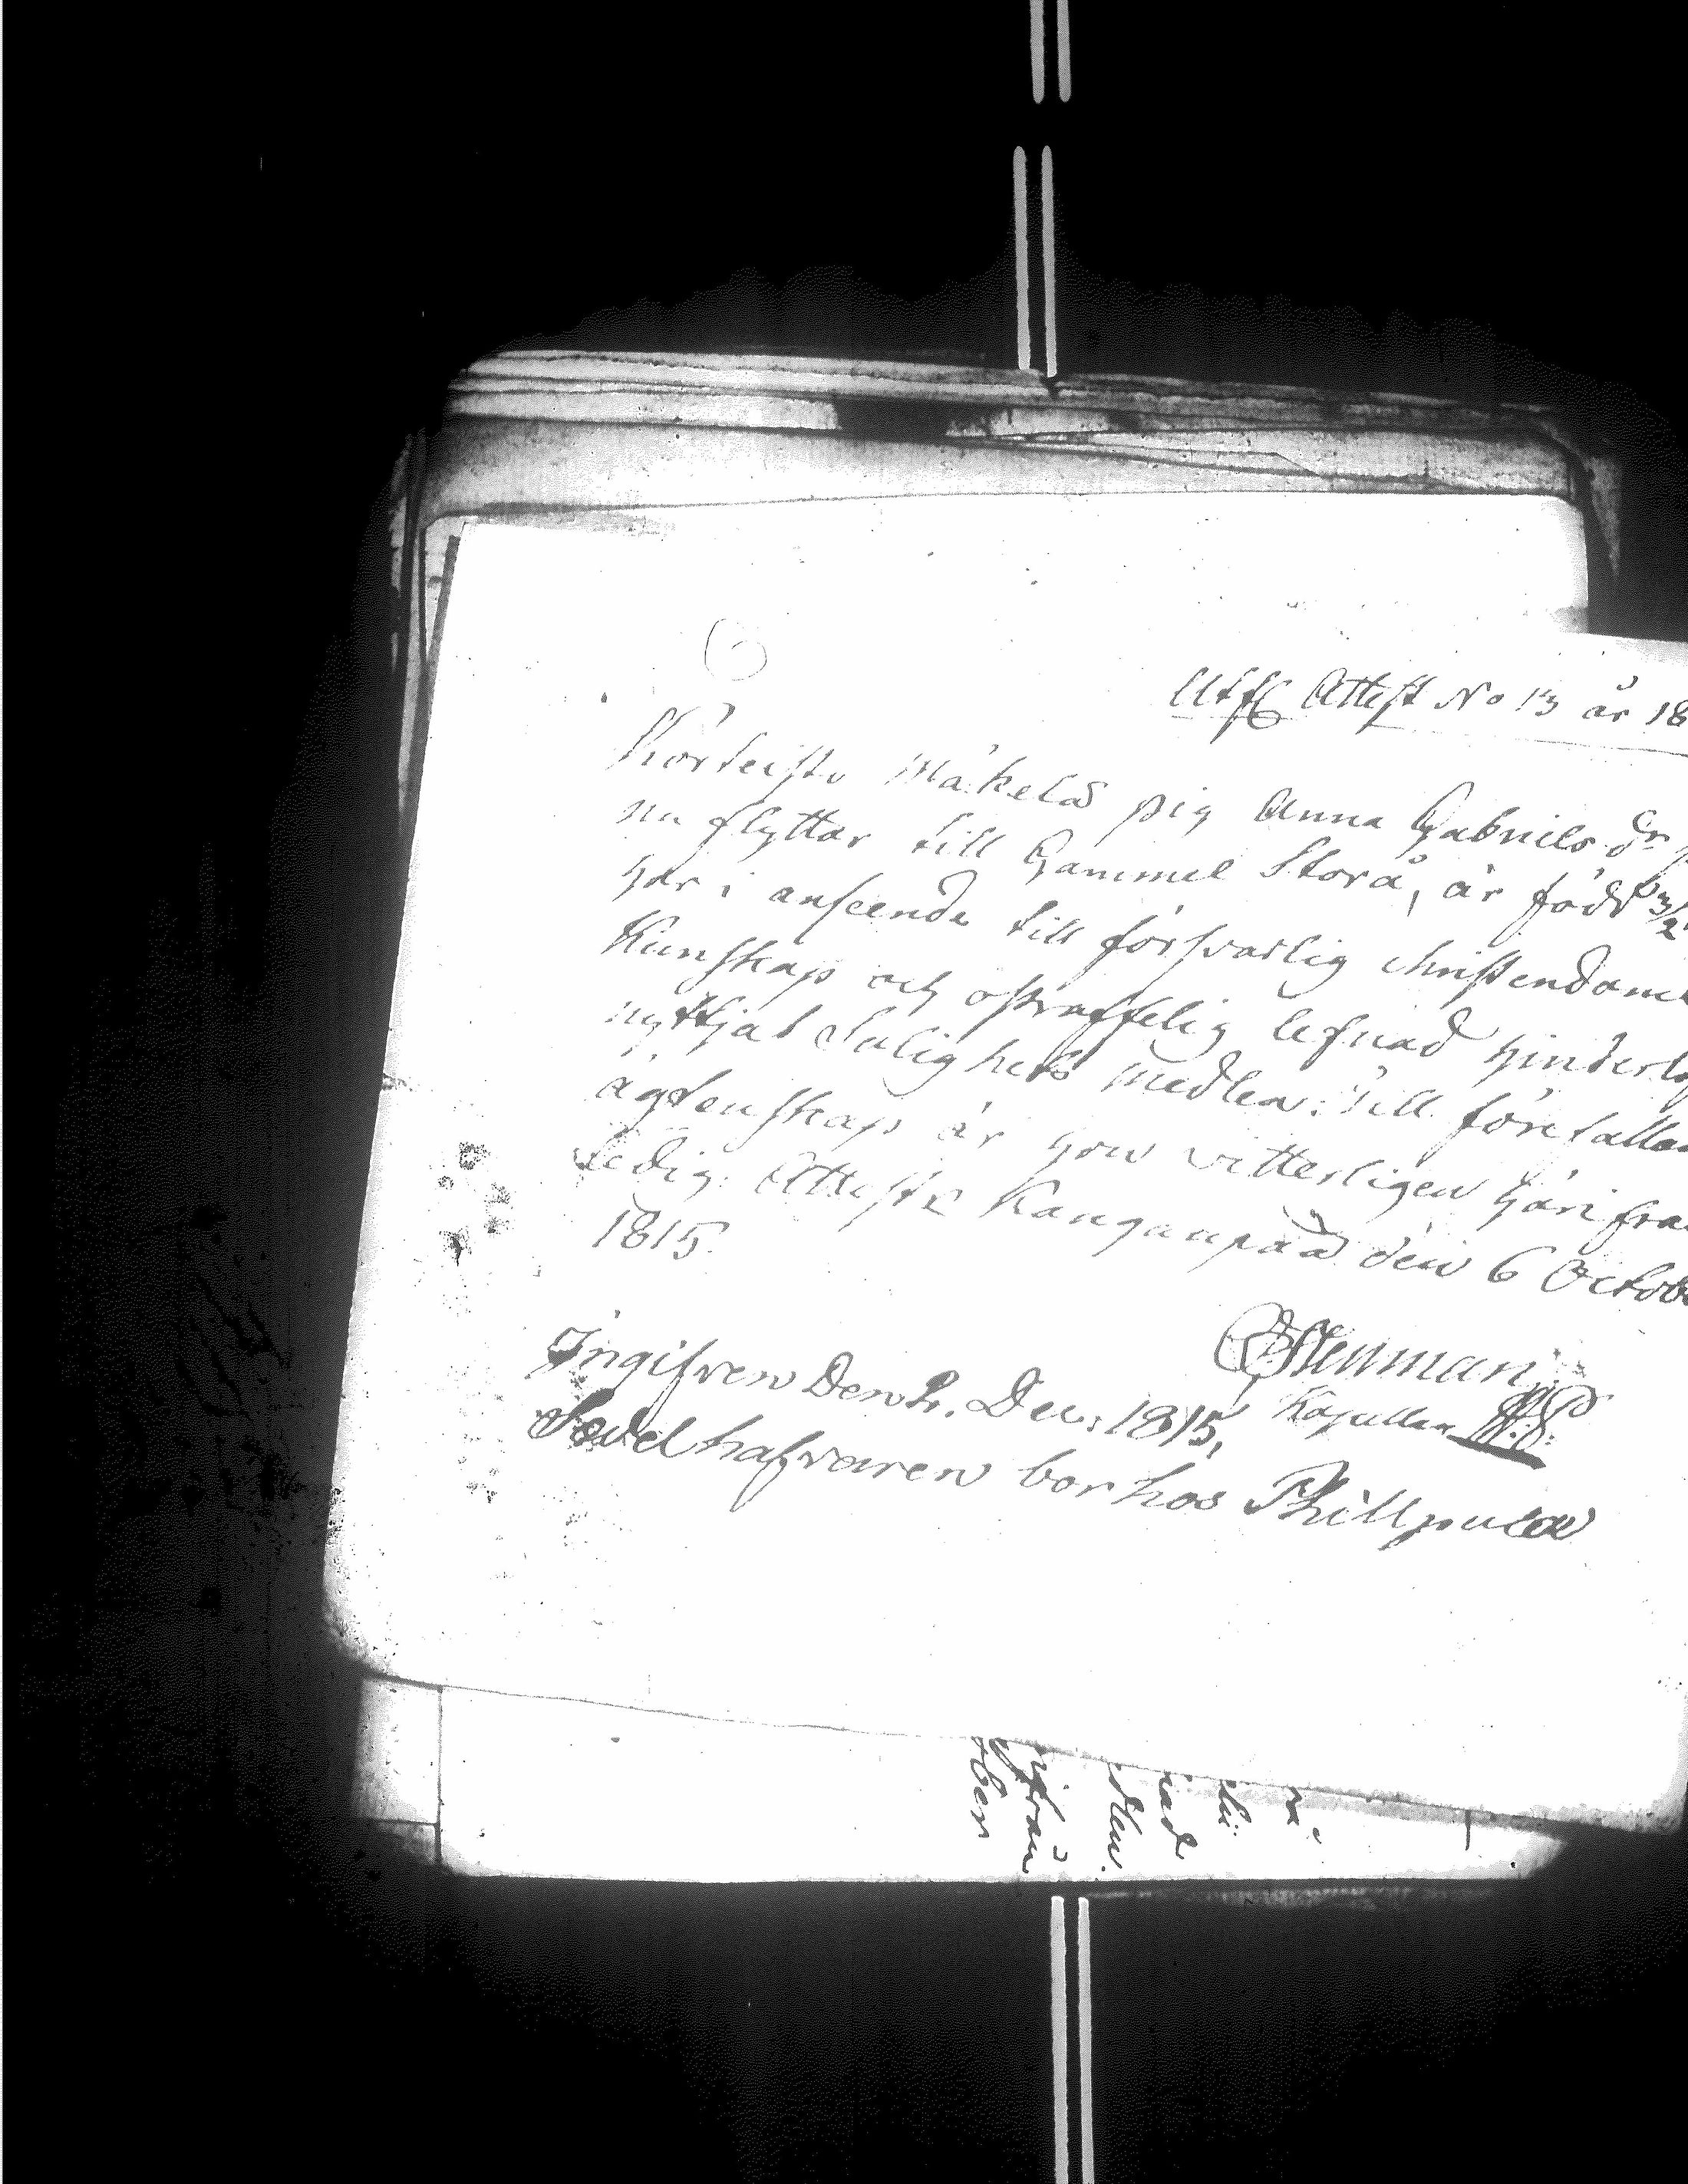 Attest No 13 år 18
Mäkelä pig Anna Gabriels dr
nu flyttar till Gammel Storå, är född 3/2
har i anseende till försvarlig christendoms
Kunskap och ostraffelig lefnad hinderlös
nyttjat Salighets medlen: Till förefallan
ägtenskap är hon vitterligen härifrå
Ledig. Attest. Kangaupää den 6 Octobe
1815.
Stenman
Kapellan
Ingifven Den 2. Dec: 1815,
Sedelhafvaren bor hos Phillpula